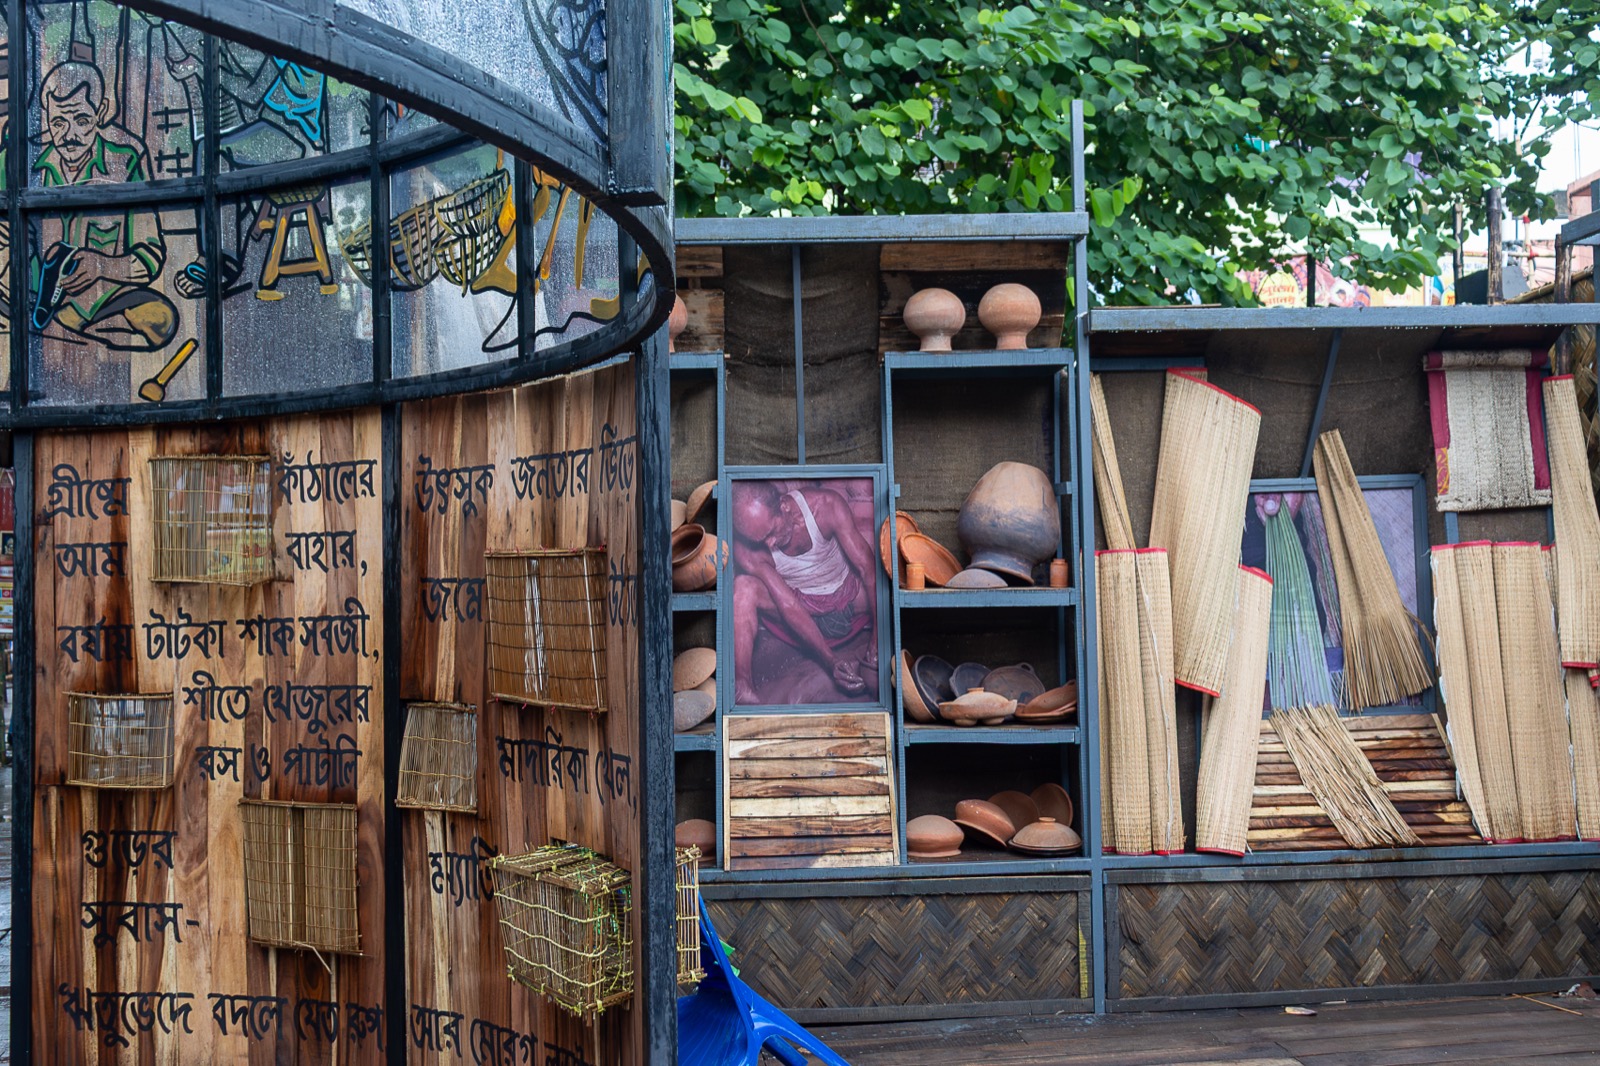 গ্রীষ্মে কাঁঠালের
আম বাহার,
বর্ষায় টাটকা শাক সবজী,
শীতে খেজুরের
রস ও পাটালি
গুড়ের
সুবাস-
ঋতুভেদে বদলে যেত রূপ
উৎসুক জনতার ভিড়ে
জমে
মাদারিকা খেল,
ম্যাজি
আর মোরগ